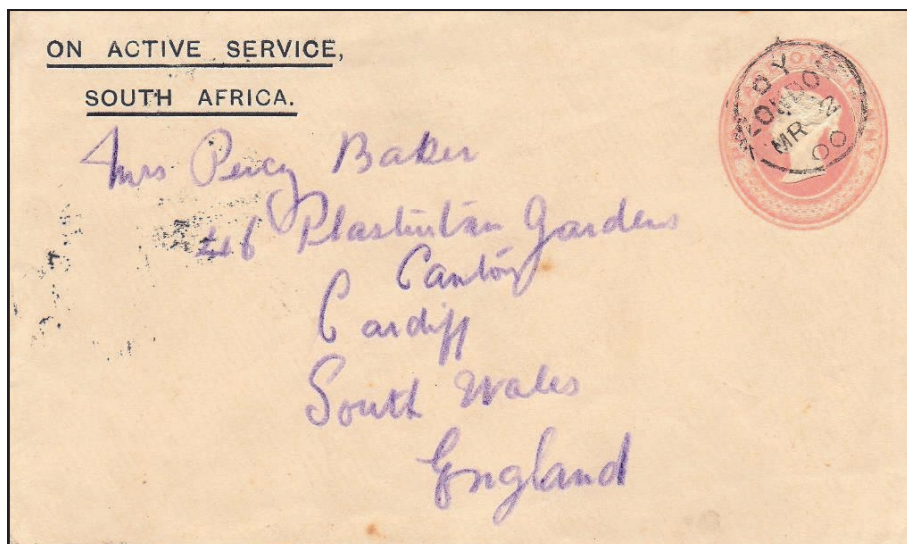 ON ACTIVE SERVICE,
SOUTH AFRICA.
Mrs Percy Baker
46 Plasturton Gardens
Canton
Cardiff
South Wales
England
LONDON
MR
00